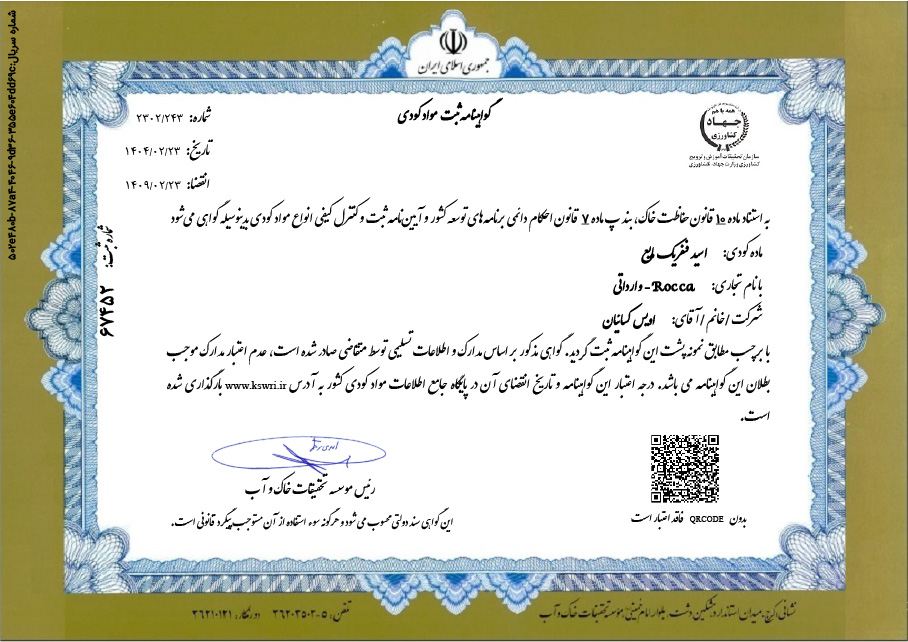 جمهوری اسلامی ایران
گواهینامه ثبت مواد کودی
شماره: ۲۳۰۲/۲۴۳
تاریخ: ۱۴۰۴/۰۲/۲۳
انقضا: ۱۴۰۹/۰۲/۲۳
همه با هم
جهاد
کشاورزی
سازمان تحقیقات، آموزش و ترویج
کشاورزی وزارت جهاد کشاورزی
به استناد ماده ۱۰ قانون حفاظت خاک، بند پ ماده ۷ قانون احکام دائمی برنامه های توسعه کشور و آیین نامه ثبت و کنترل کیفی انواع مواد کودی بدینوسیله گواهی می شود
ماده کودی: اسید فسفریک مایع
با نام تجاری: Rocca - وارداتی
شرکت / خانم / آقای: اویس کسائیان
با برچسب مطابق نمونه پشت این گواهینامه ثبت گردید. گواهی مذکور بر اساس مدارک و اطلاعات تسلیمی توسط متقاضی صادر شده است، عدم اعتبار مدارک موجب
بطلان این گواهینامه می باشد. درجه اعتبار این گواهینامه و تاریخ انقضای آن در پایگاه جامع اطلاعات مواد کودی کشور به آدرس www.kswri.ir بارگذاری شده
است.
شماره ثبت: ۶۷۴۵۲
رئیس موسسه تحقیقات خاک و آب
بدون QRCODE فاقد اعتبار است
این گواهی سند دولتی محسوب می شود و هرگونه سوء استفاده از آن مستوجب پیگرد قانونی است.
نشانی: کرج، میدان استاندارد، مشکین دشت، بلوار امام خمینی، موسسه تحقیقات خاک و آب
تلفن: ۵-۳۶۲۰۳۵۰۳ دورنگار: ۳۶۲۱۰۱۲۱